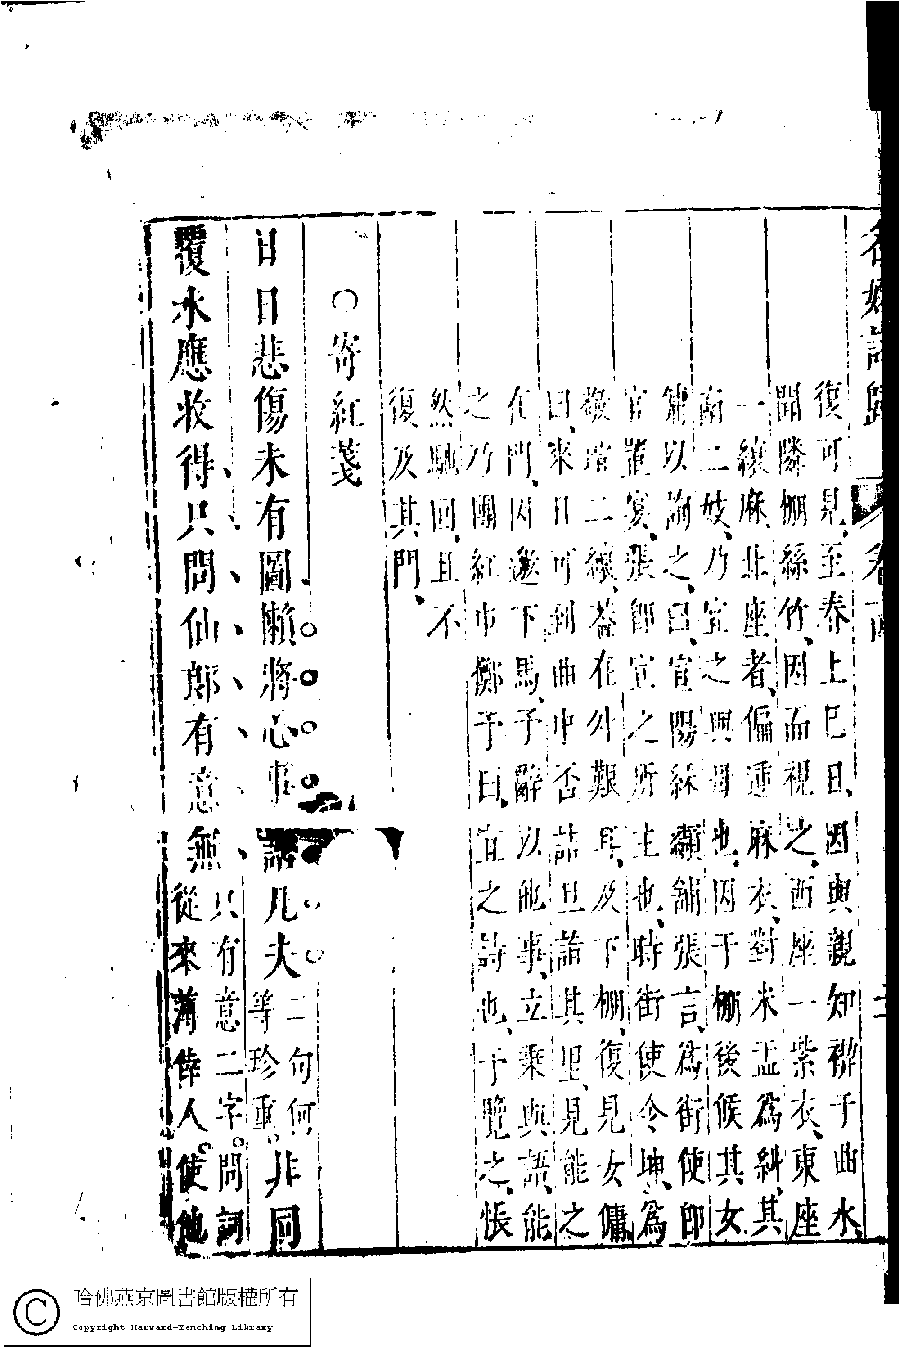 名媛詩歸 卷十四 二
復可見、至春上巳日、因與親知禊于曲水、
聞隣棚絲竹、因而視之、西座一紫衣、東座
一縗麻、北座者、偏連麻衣、對米盂為糾、其
南二妓、乃宜之與母也、因于棚後候其女
傭以詢之、曰、宣陽綵纈舖張言、為街使郎
官置宴、張即宜之所主也、時街使令坤、為
敬瑄二縗、蓋在外艱耳、及下棚、復見女傭
曰、來日可到曲中否、詰旦詣其里、見能之
在門、因邀下馬、予辭以他事、立乘與語、能
之乃團紅巾擲予曰、宜之詩也、予覽之、悵
然馳回、且不
復及其門、
○寄紅箋
日日悲傷未有圖懶將心事話凡夫二句何等珍重。非同
覆水應收得只問仙郎有意無只有意二字。問詞從來薄倖人。使他
哈佛燕京圖書館版權所有
Copyright Harvard-Yenching Library